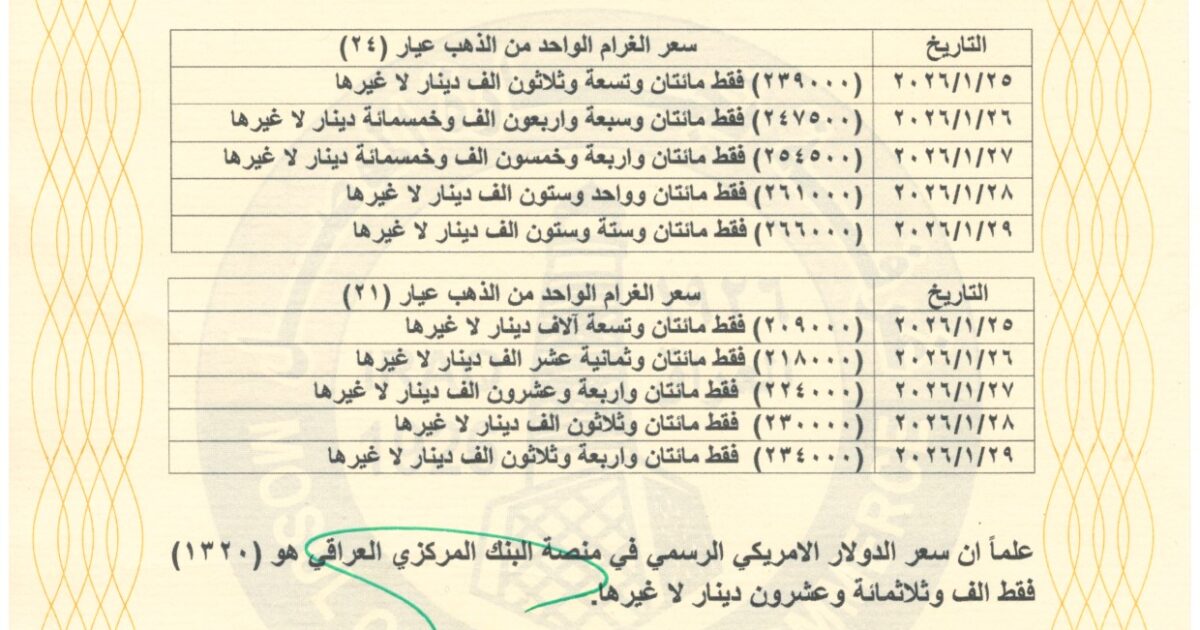 التاريخ سعر الغرام الواحد من الذهب عيار (٢٤)
٢٠٢٦/١/٢٥ (٢٣٩٠٠٠) فقط مائتان وتسعة وثلاثون الف دينار لا غيرها
٢٠٢٦/١/٢٦ (٢٤٧٥٠٠) فقط مائتان وسبعة واربعون الف وخمسمائة دينار لا غيرها
٢٠٢٦/١/٢٧ (٢٥٤٥٠٠) فقط مائتان واربعة وخمسون الف وخمسمائة دينار لا غيرها
٢٠٢٦/١/٢٨ (٢٦١٠٠٠) فقط مائتان وواحد وستون الف دينار لا غيرها
٢٠٢٦/١/٢٩ (٢٦٦٠٠٠) فقط مائتان وستة وستون الف دينار لا غيرها
التاريخ سعر الغرام الواحد من الذهب عيار (٢١)
٢٠٢٦/١/٢٥ (٢٠٩٠٠٠) فقط مائتان وتسعة آلاف دينار لا غيرها
٢٠٢٦/١/٢٦ (٢١٨٠٠٠) فقط مائتان وثمانية عشر الف دينار لا غيرها
٢٠٢٦/١/٢٧ (٢٢٤٠٠٠) فقط مائتان واربعة وعشرون الف دينار لا غيرها
٢٠٢٦/١/٢٨ (٢٣٠٠٠٠) فقط مائتان وثلاثون الف دينار لا غيرها
٢٠٢٦/١/٢٩ (٢٣٤٠٠٠) فقط مائتان واربعة وثلاثون الف دينار لا غيرها
علماً ان سعر الدولار الامريكي الرسمي في منصة البنك المركزي العراقي هو (١٣٢٠)
فقط الف وثلاثمائة وعشرون دينار لا غيرها.